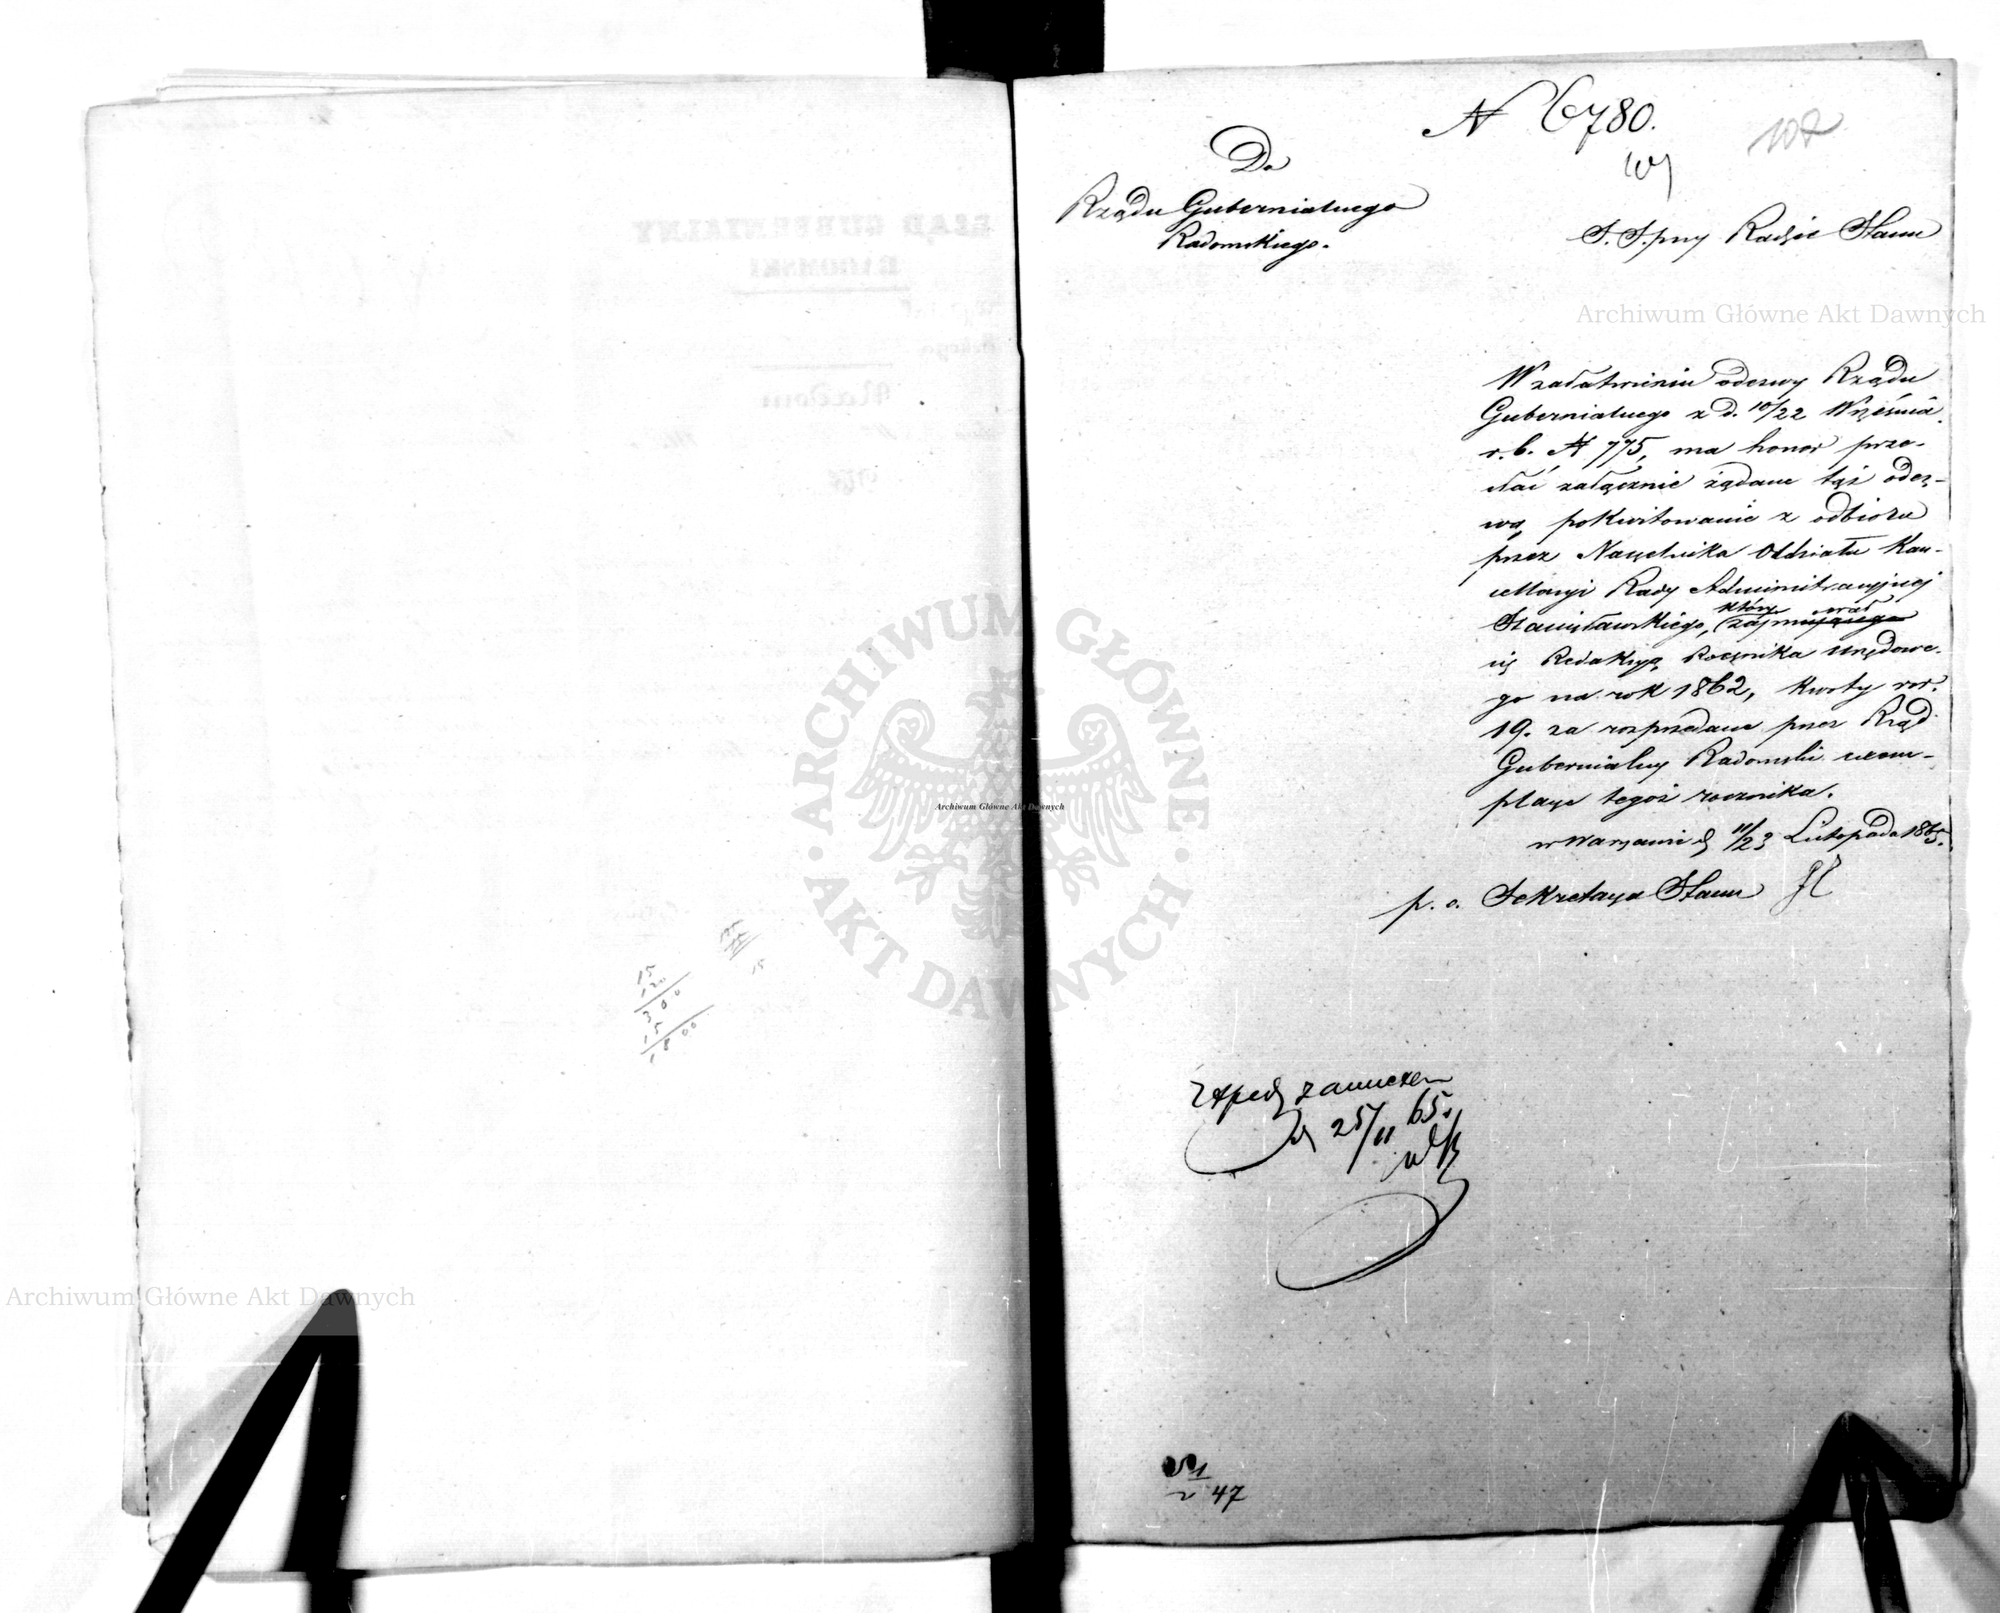 N 6780.
102
Do
Rządu Gubernialnego
Radomskiego.
S. S. przy Radzie Stanu
W załatwieniu odezwy Rządu
Gubernialnego z d. 10/22 Września
r. b. N 775, ma honor prze-
słać załącznie żądane tąż odez-
wą, pokwitowanie z odbioru
przez Naczelnika Oddziału Kan-
cellaryi Rady Administracyjnej
Stanisławskiego, który
zajmującego
się Redakcyą Rocznika Urzędowe-
go na rok 1862, kwoty rsr.
19. za rozprzedane przez Rząd
Gubernialny Radomski exem-
plarze tegoż rocznika.
w Warszawie d 11/23 Listopada 1865.
p. o. Sekretarza Stanu
25/11 65.
47
15
120
300
15
1800
15
RZĄD GUBERNIALNY
RADOMSKI
Radom
Archiwum Główne Akt Dawnych
ARCHIWUM GŁÓWNE
AKT DAWNYCH
Archiwum Główne Akt Dawnych
Archiwum Główne Akt Dawnych